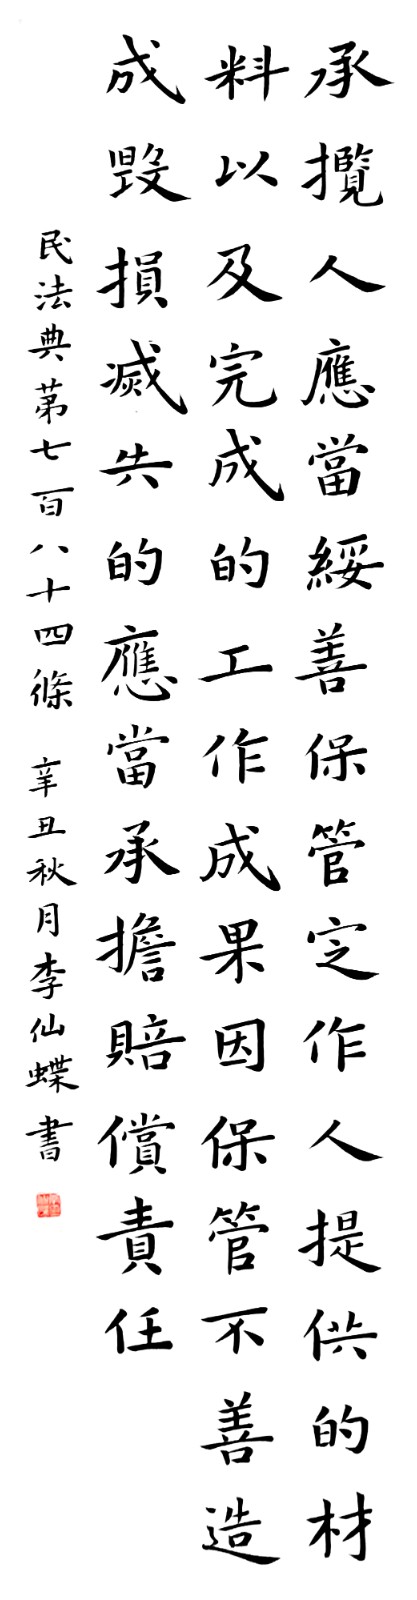 承攬人應當綏善保管定作人提供的材
料以及完成的工作成果因保管不善造
成毀損滅失的應當承擔賠償責任
民法典第七百八十四條 辛丑秋月李仙蝶書